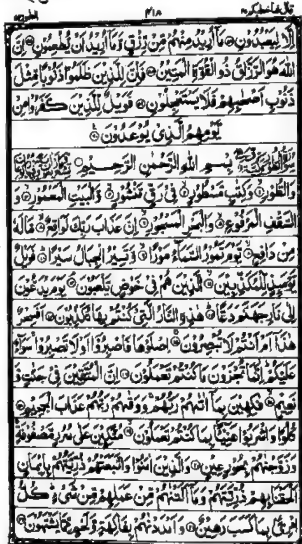 قال فما خطبكم ٢٧ ٤١٨ الطور ٥٢
اِلَّا لِیَعْبُدُوْنِ مَاۤ اُرِیْدُ مِنْهُمْ مِّنْ رِّزْقٍ وَّمَاۤ اُرِیْدُ اَنْ یُّطْعِمُوْنِ اِنَّ
اللّٰهَ هُوَ الرَّزَّاقُ ذُو الْقُوَّةِ الْمَتِیْنُ فَاِنَّ لِلَّذِیْنَ ظَلَمُوْا ذَنُوْبًا مِّثْلَ
ذَنُوْبِ اَصْحٰبِهِمْ فَلَا یَسْتَعْجِلُوْنِ فَوَیْلٌ لِّلَّذِیْنَ كَفَرُوْا مِنْ
یَّوْمِهِمُ الَّذِیْ یُوْعَدُوْنَ
بِسْمِ اللّٰهِ الرَّحْمٰنِ الرَّحِیْمِ
وَالطُّوْرِ وَكِتٰبٍ مَّسْطُوْرٍ فِیْ رَقٍّ مَّنْشُوْرٍ وَّالْبَیْتِ الْمَعْمُوْرِ وَ
السَّقْفِ الْمَرْفُوْعِ وَالْبَحْرِ الْمَسْجُوْرِ اِنَّ عَذَابَ رَبِّكَ لَوَاقِعٌ مَّا لَهٗ
مِنْ دَافِعٍ یَّوْمَ تَمُوْرُ السَّمَآءُ مَوْرًا وَّتَسِیْرُ الْجِبَالُ سَیْرًا فَوَیْلٌ
یَّوْمَىِٕذٍ لِّلْمُكَذِّبِیْنَ الَّذِیْنَ هُمْ فِیْ خَوْضٍ یَّلْعَبُوْنَ یَوْمَ یُدَعُّوْنَ
اِلٰی نَارِ جَهَنَّمَ دَعًّا هٰذِهِ النَّارُ الَّتِیْ كُنْتُمْ بِهَا تُكَذِّبُوْنَ اَفَسِحْرٌ
هٰذَاۤ اَمْ اَنْتُمْ لَا تُبْصِرُوْنَ اِصْلَوْهَا فَاصْبِرُوْۤا اَوْ لَا تَصْبِرُوْا سَوَآءٌ
عَلَیْكُمْ اِنَّمَا تُجْزَوْنَ مَا كُنْتُمْ تَعْمَلُوْنَ اِنَّ الْمُتَّقِیْنَ فِیْ جَنّٰتٍ وَّ
نَعِیْمٍ فٰكِهِیْنَ بِمَاۤ اٰتٰىهُمْ رَبُّهُمْ وَوَقٰىهُمْ رَبُّهُمْ عَذَابَ الْجَحِیْمِ
كُلُوْا وَاشْرَبُوْا هَنِیْٓــٴًۢا بِمَا كُنْتُمْ تَعْمَلُوْنَ مُتَّكِـِٕیْنَ عَلٰی سُرُرٍ مَّصْفُوْفَةٍ
وَزَوَّجْنٰهُمْ بِحُوْرٍ عِیْنٍ وَالَّذِیْنَ اٰمَنُوْا وَاتَّبَعَتْهُمْ ذُرِّیَّتُهُمْ بِاِیْمَانٍ
اَلْحَقْنَا بِهِمْ ذُرِّیَّتَهُمْ وَمَاۤ اَلَتْنٰهُمْ مِّنْ عَمَلِهِمْ مِّنْ شَیْءٍ كُلُّ
امْرِئٍۭ بِمَا كَسَبَ رَهِیْنٌ وَاَمْدَدْنٰهُمْ بِفَاكِهَةٍ وَّلَحْمٍ مِّمَّا یَشْتَهُوْنَ